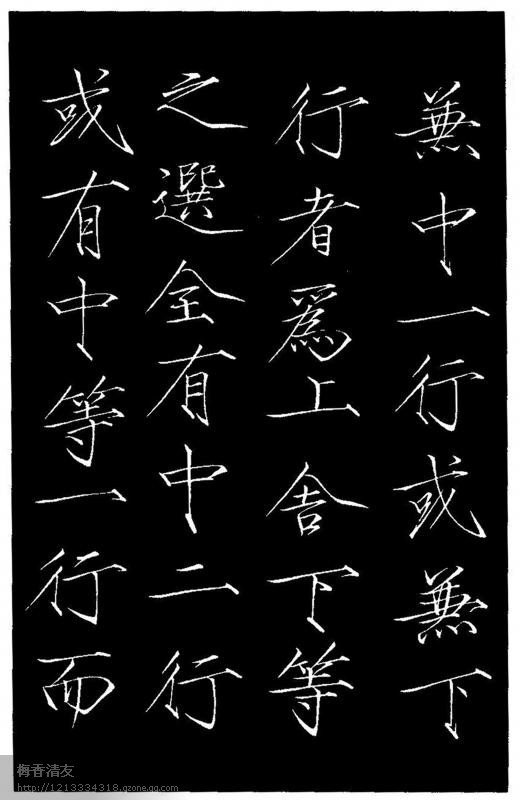 兼中一行或兼下
行者爲上舍下等
之選全有中二行
或有中等一行而
梅香清友
http://1213334318.qzone.qq.com